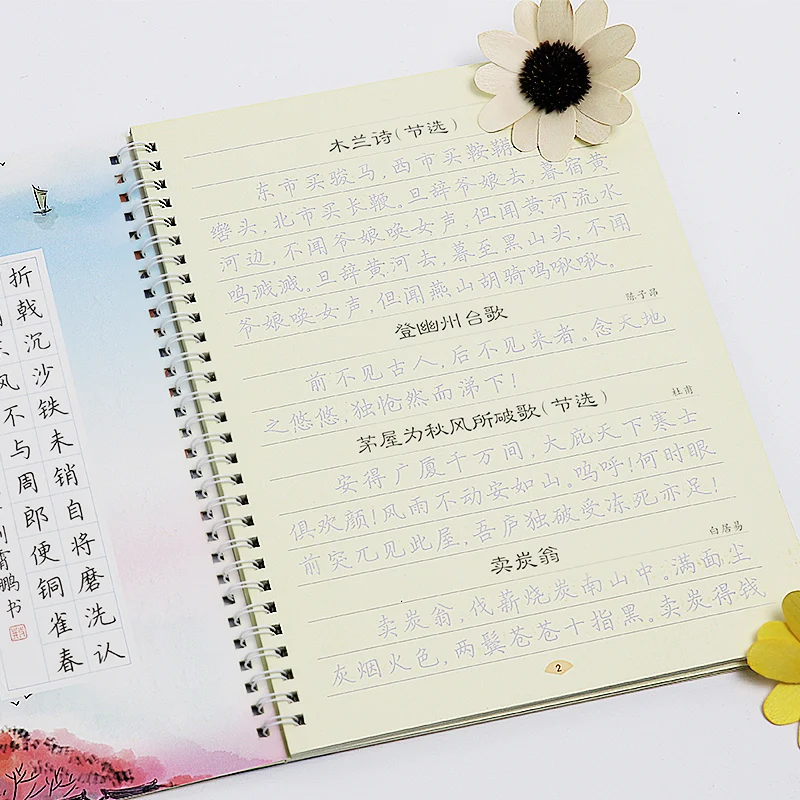 折戟沉沙铁未销自将磨洗认
风不与周郎便铜雀春
霄鹏书
木兰诗(节选)
东市买骏马,西市买鞍鞯
辔头,北市买长鞭。旦辞爷娘去,暮宿黄
河边,不闻爷娘唤女声,但闻黄河流水
鸣溅溅。旦辞黄河去,暮至黑山头,不闻
爷娘唤女声,但闻燕山胡骑鸣啾啾。
登幽州台歌
陈子昂
前不见古人,后不见来者。念天地
之悠悠,独怆然而涕下!
茅屋为秋风所破歌(节选)
杜甫
安得广厦千万间,大庇天下寒士
俱欢颜!风雨不动安如山。呜呼!何时眼
前突兀见此屋,吾庐独破受冻死亦足!
卖炭翁
白居易
卖炭翁,伐薪烧炭南山中。满面尘
灰烟火色,两鬓苍苍十指黑。卖炭得钱
2